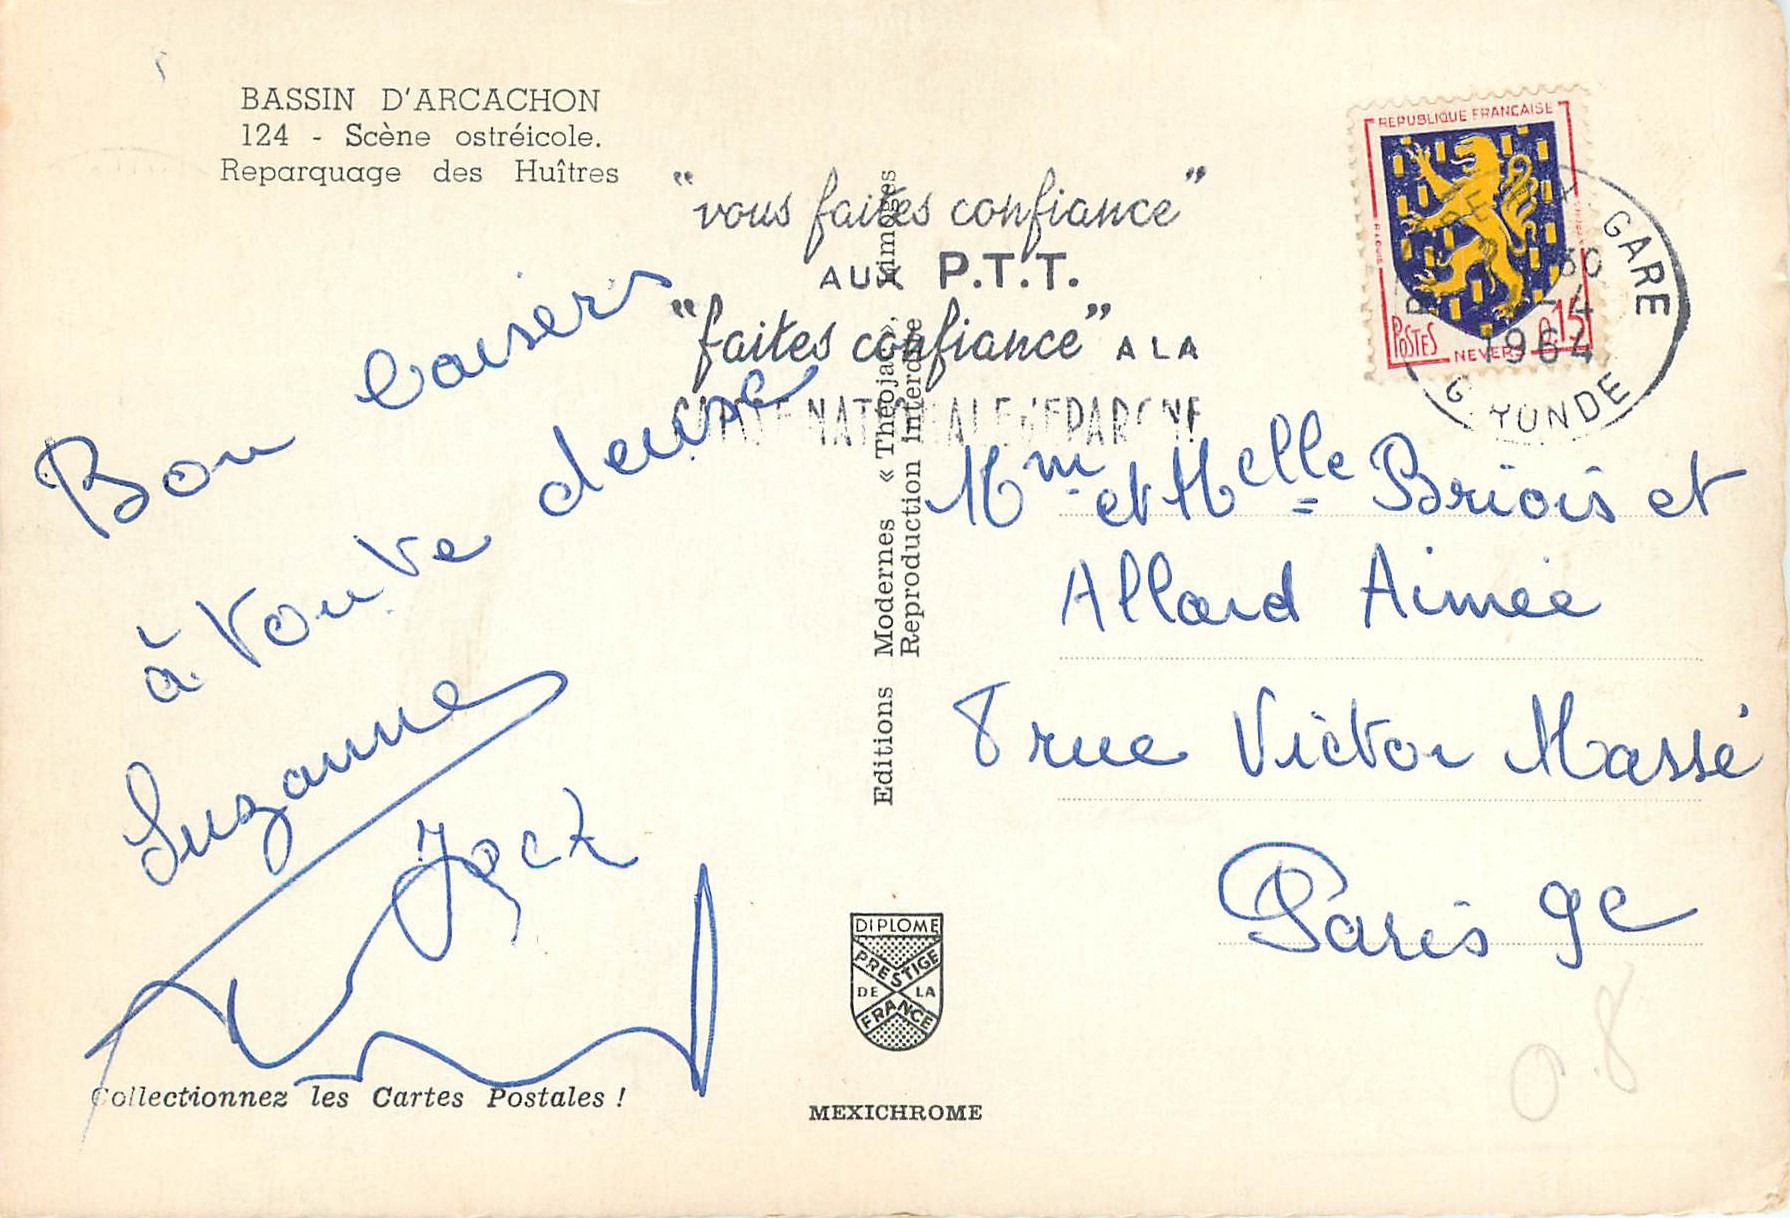 BASSIN D'ARCACHON
124 - Scène ostréicole.
Reparquage des Huîtres
"vous faites confiance"
AUX P.T.T.
"faites confiance" A LA
CAISSE NATIONALE D'EPARGNE
REPUBLIQUE FRANCAISE
POSTES
NEVERS
0,15
GARE
30
4
1964
GIRONDE
Bon baisers
à toute deuse
Suzanne
Jack
Mme et Melle Briois et
Allard Aimée
8 rue Victor Massé
Paris 9e
Editions Modernes « Théojac », Limoges
Reproduction interdite
DIPLOME
PRESTIGE
DE LA
FRANCE
Collectionnez les Cartes Postales !
MEXICHROME
0.8